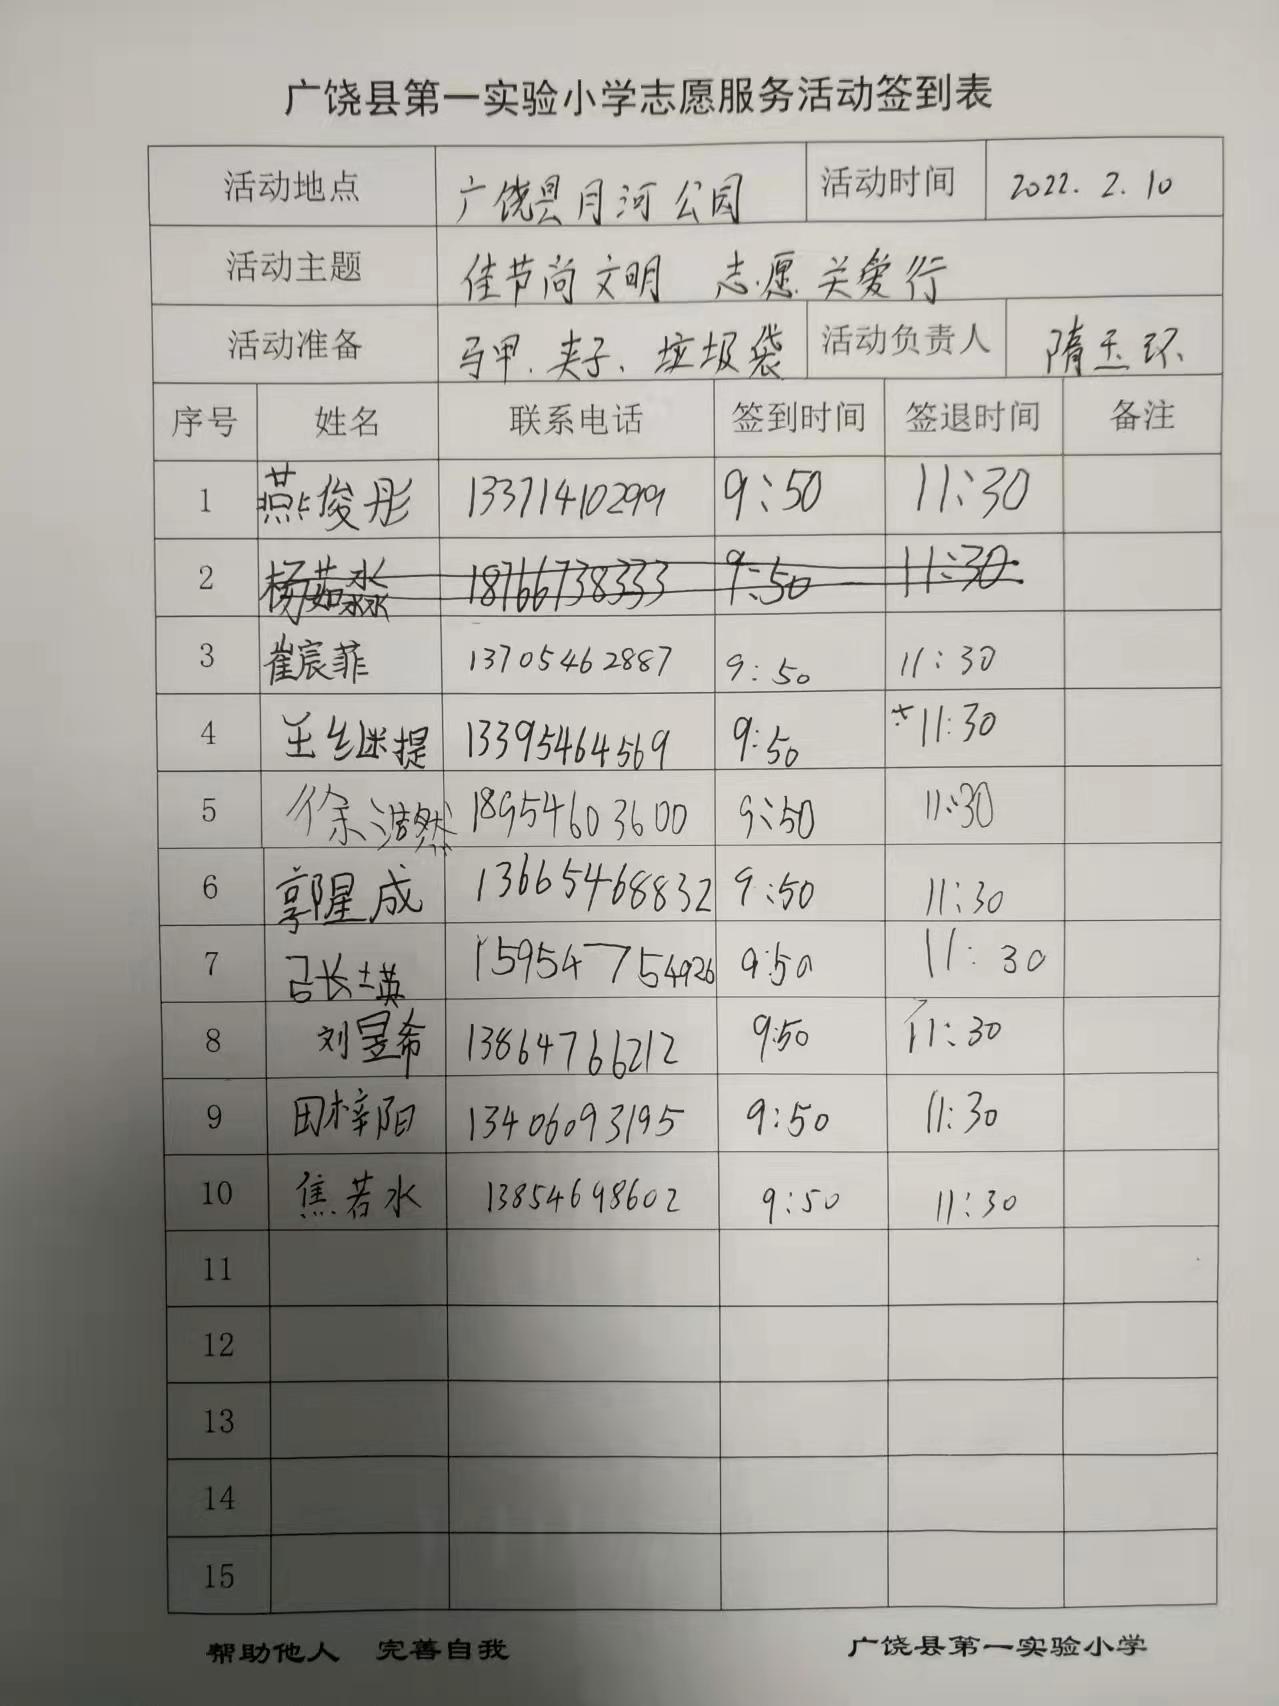 广饶县第一实验小学志愿服务活动签到表
活动地点 广饶县月河公园 活动时间 2022.2.10
活动主题 佳节尚文明 志愿关爱行
活动准备 马甲、夹子、垃圾袋 活动负责人 隋玉环
序号 姓名 联系电话 签到时间 签退时间 备注
1 燕俊彤 13371410299 9:50 11:30
2 杨茹淼 18766738333 9:50 11:30
3 崔宸菲 13705462887 9:50 11:30
4 王继提 13395464569 9:50 11:30
5 徐浩然 18954603600 9:50 11:30
6 郭星成 13665468832 9:50 11:30
7 15954754926 9:50 11:30
8 刘昱希 13864766212 9:50 11:30
9 田梓阳 13406093195 9:50 11:30
10 焦若水 13854698602 9:50 11:30
11
12
13
14
15
帮助他人 完善自我 广饶县第一实验小学